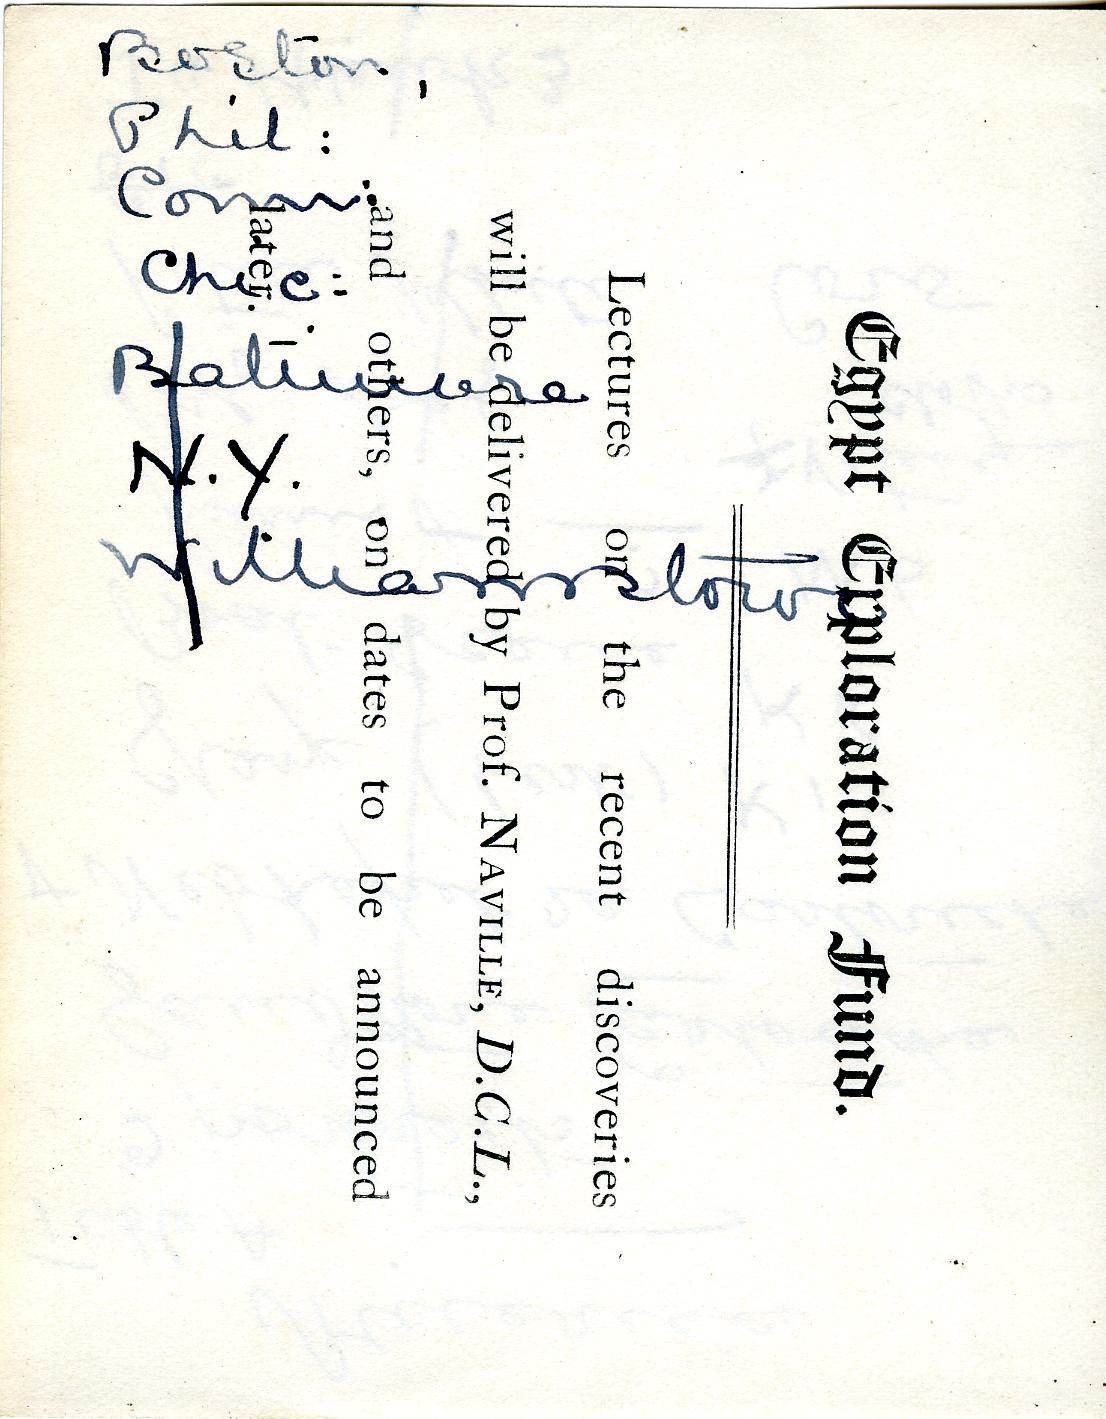 Boston,
Phil:
Conn:
Chic:
Baltimore
N.Y.
Williamstown
Egypt Exploration Fund.
Lectures on the recent discoveries
will be delivered by Prof. NAVILLE, D.C.L.,
and others, on dates to be announced
later.